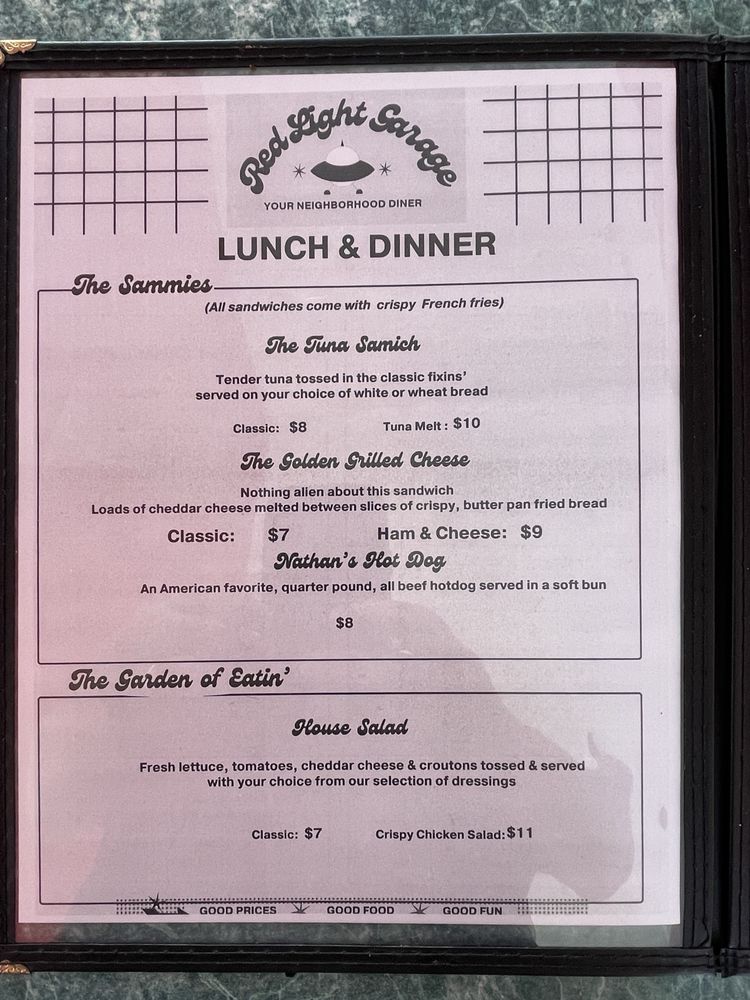 Red Light Garage
YOUR NEIGHBORHOOD DINER
LUNCH & DINNER
The Sammies
(All sandwiches come with crispy French fries)
The Tuna Samich
Tender tuna tossed in the classic fixins'
served on your choice of white or wheat bread
Classic: $8 Tuna Melt: $10
The Golden Grilled Cheese
Nothing alien about this sandwich
Loads of cheddar cheese melted between slices of crispy, butter pan fried bread
Classic: $7 Ham & Cheese: $9
Nathan's Hot Dog
An American favorite, quarter pound, all beef hotdog served in a soft bun
$8
The Garden of Eatin'
House Salad
Fresh lettuce, tomatoes, cheddar cheese & croutons tossed & served
with your choice from our selection of dressings
Classic: $7 Crispy Chicken Salad: $11
GOOD PRICES GOOD FOOD GOOD FUN